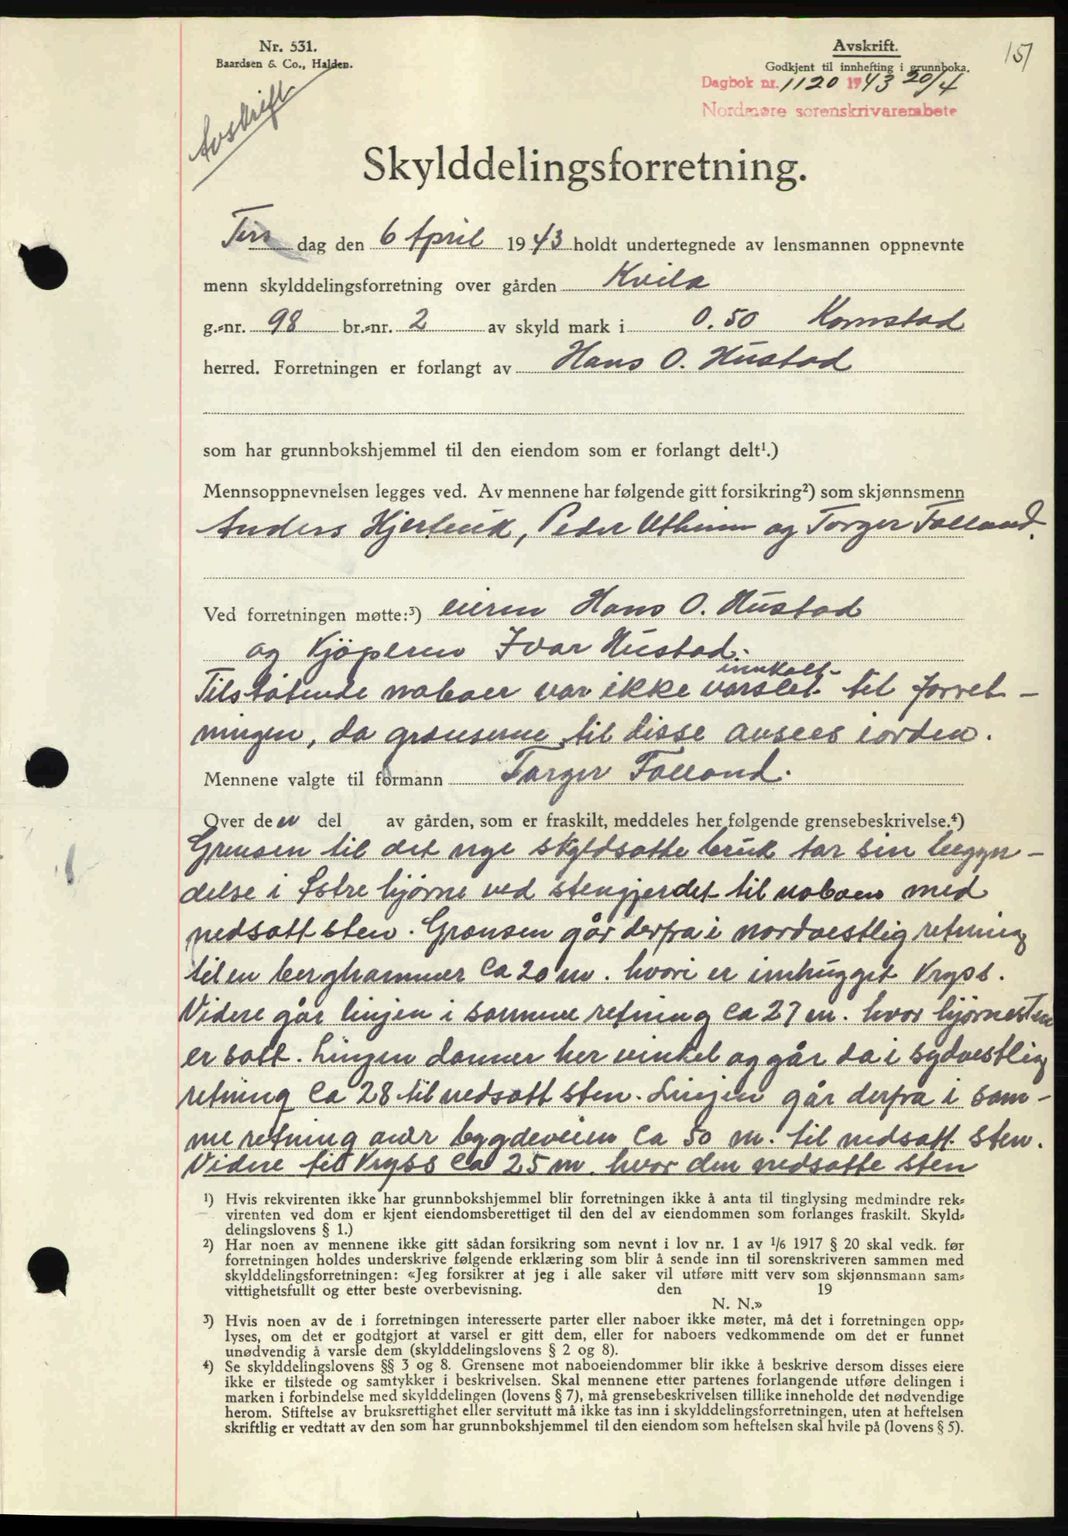 Nr. 531.
Baardsen & Co., Halden.
Avskrift.
Godkjent til innhefting i grunnboka.
151
Dagbok nr. 1120 1943 20/4
Nordmøre sorenskrivarembete
Avskrift
Skylddelingsforretning.
Tirs dag den 6 April 1943 holdt undertegnede av lensmannen oppnevnte
menn skylddelingsforretning over gården Kvila
g.-nr. 98 br.-nr. 2 av skyld mark i 0.50 Kornstad
herred. Forretningen er forlangt av Hans O. Hustad
som har grunnbokshjemmel til den eiendom som er forlangt delt¹.)
Mennsoppnevnelsen legges ved. Av mennene har følgende gitt forsikring²) som skjønnsmenn
Anders Hjertvik, Peder Utheim og Torger Folland.
Ved forretningen møtte:³) eieren Hans O. Hustad
og kjøperen Ivar Hustad.
innkalt
Tilstøtende naboer var ikke varslet til forret-
ningen, da grensene til disse ansees iorden.
Mennene valgte til formann Torger Folland.
Over den del av gården, som er fraskilt, meddeles her følgende grensebeskrivelse.⁴)
Grensen til det nye skyldsatte bruk tar sin begyn-
delse i Østre hjørne ved stengjerdet til naboen med
nedsatt sten. Grensen går derfra i nordvestlig retning
til en berghammer ca 20 m. hvori er innhugget kryss.
Videre går linjen i samme retning ca 27 m. hvor hjørnesten
er satt. Linjen danner her vinkel og går da i sydvestlig
retning ca 28 til nedsatt sten. Linjen går derfra i sam-
me retning over bygdeveien ca 50 m. til nedsatt sten.
Videre til kryss ca 25 m. hvor den nedsatte sten
¹) Hvis rekvirenten ikke har grunnbokshjemmel blir forretningen ikke å anta til tinglysing medmindre rek-
virenten ved dom er kjent eiendomsberettiget til den del av eiendommen som forlanges fraskilt. (Skyld-
delingslovens § 1.)
²) Har noen av mennene ikke gitt sådan forsikring som nevnt i lov nr. 1 av 1/6 1917 § 20 skal vedk. før
forretningen holdes underskrive følgende erklæring som blir å sende inn til sorenskriveren sammen med
skylddelingsforretningen: «Jeg forsikrer at jeg i alle saker vil utføre mitt verv som skjønnsmann sam-
vittighetsfullt og etter beste overbevisning. den 19
N. N.»
³) Hvis noen av de i forretningen interesserte parter eller naboer ikke møter, må det i forretningen opp-
lyses, om det er godtgjort at varsel er gitt dem, eller for naboers vedkommende om det er funnet
unødvendig å varsle dem (skylddelingslovens § 2 og 8).
⁴) Se skylddelingslovens §§ 3 og 8. Grensene mot naboeiendommer blir ikke å beskrive dersom disses eiere
ikke er tilstede og samtykker i beskrivelsen. Skal mennene etter partenes forlangende utføre delingen i
marken i forbindelse med skylddelingen (lovens § 7), må grensebeskrivelsen tillike inneholde det nødvendige
herom. Stiftelse av bruksrettighet eller servitutt må ikke tas inn i skylddelingsforretningen, uten at heftelsen
skriftlig er vedtatt av den som har grunnbokshjemmel til den eiendom som heftelsen skal hvile på (lovens § 5).